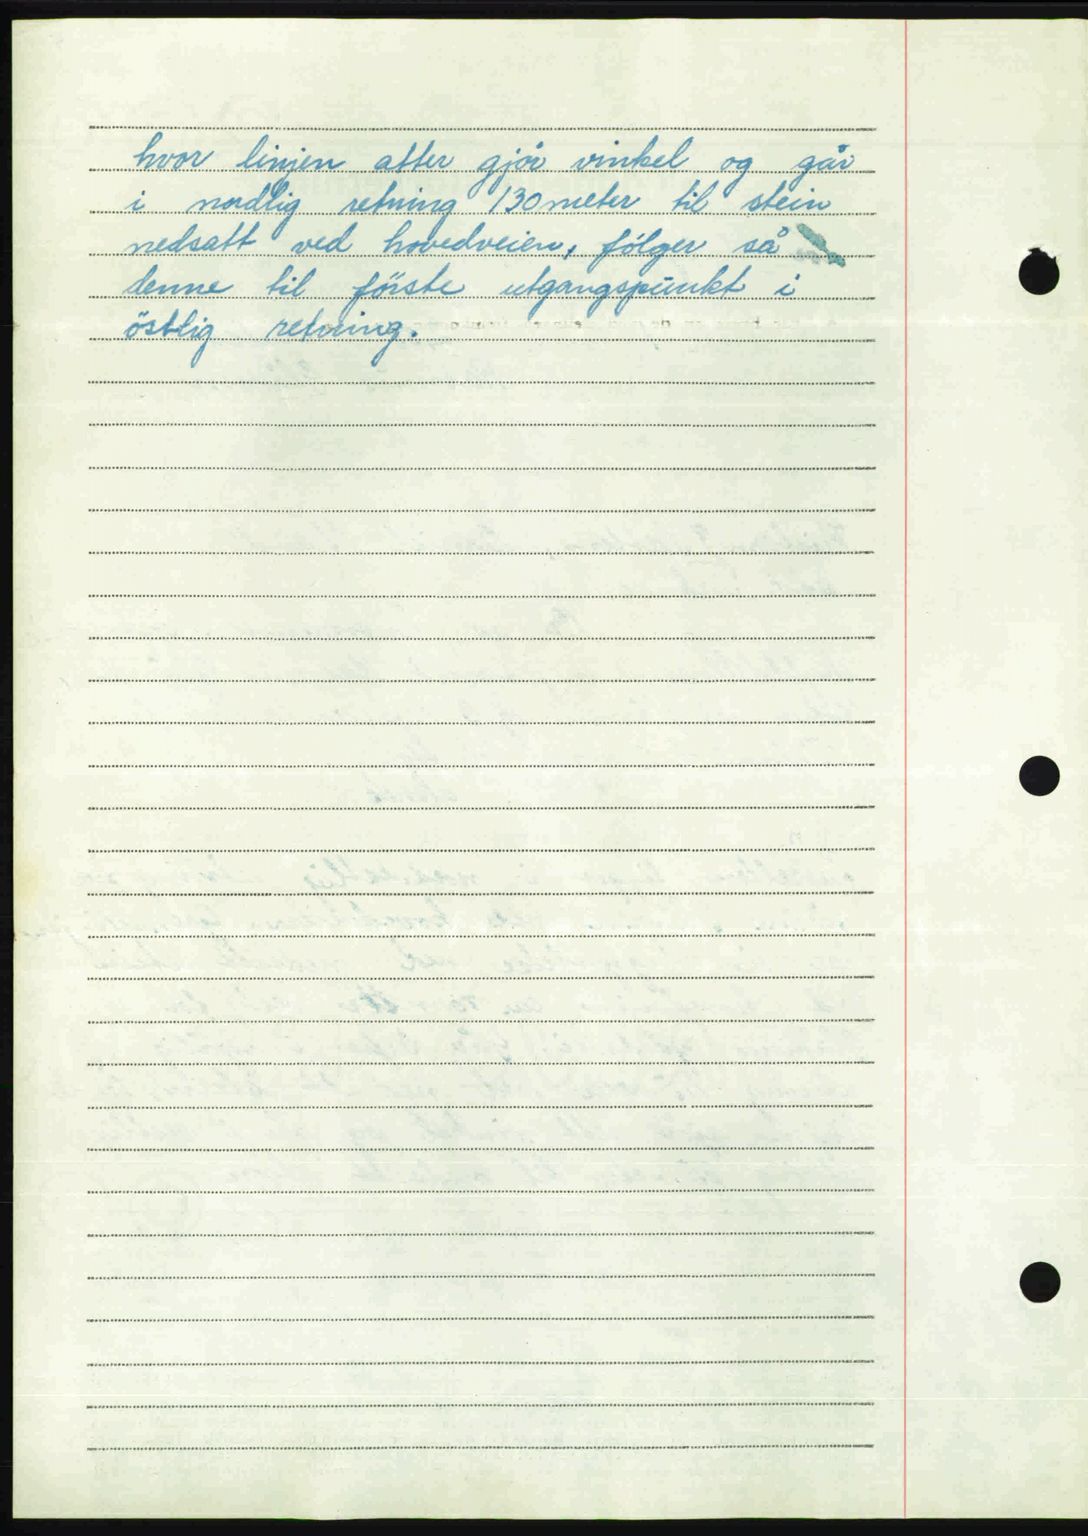 hvor linjen atter gjör vinkel og går
i nordlig retning 130 meter til stein
nedsatt ved hovedveien, fölger så
denne til förste utgangspunkt i
östlig retning.